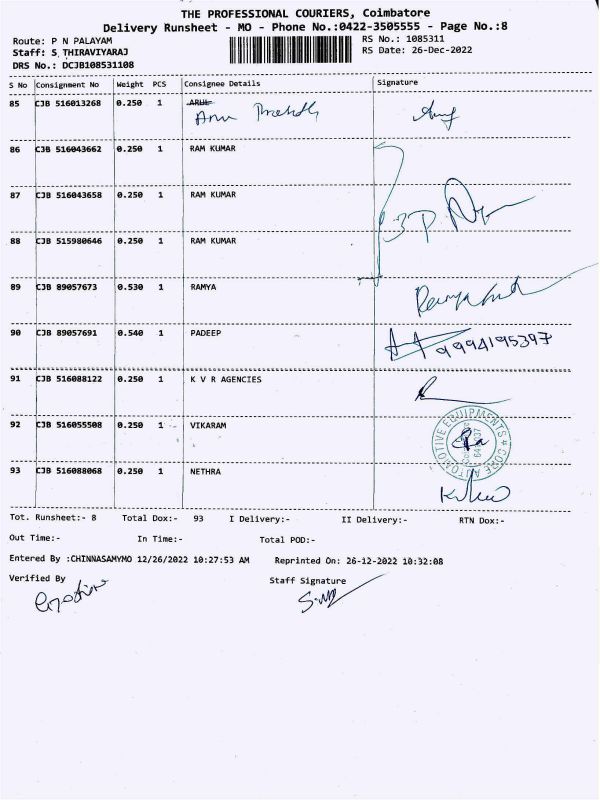 THE PROFESSIONAL COURIERS, Coimbatore
Delivery Runsheet - MO - Phone No.:0422-3505555 - Page No.:8
Route: P N PALAYAM RS No.: 1085311
Staff: S THIRAVIYARAJ RS Date: 26-Dec-2022
DRS No.: DCJB108531108
S No Consignment No Weight PCS Consignee Details Signature
85 CJB 516013268 0.250 1 ARUL
86 CJB 516043662 0.250 1 RAM KUMAR
87 CJB 516043658 0.250 1 RAM KUMAR
88 CJB 515980646 0.250 1 RAM KUMAR
89 CJB 89057673 0.530 1 RAMYA
90 CJB 89057691 0.540 1 PADEEP 9994195397
91 CJB 516088122 0.250 1 K V R AGENCIES
92 CJB 516055508 0.250 1 VIKARAM
AUTOMOTIVE EQUIPMENTS
93 CJB 516088068 0.250 1 NETHRA
Tot. Runsheet:- 8 Total Dox:- 93 I Delivery:- II Delivery:- RTN Dox:-
Out Time:- In Time:- Total POD:-
Entered By :CHINNASAMYMO 12/26/2022 10:27:53 AM Reprinted On: 26-12-2022 10:32:08
Verified By Staff Signature